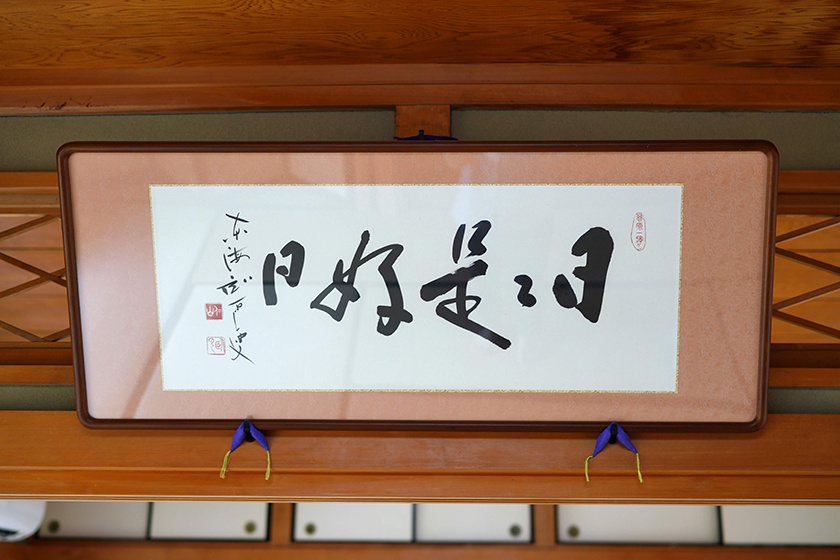 日々是好日
東海